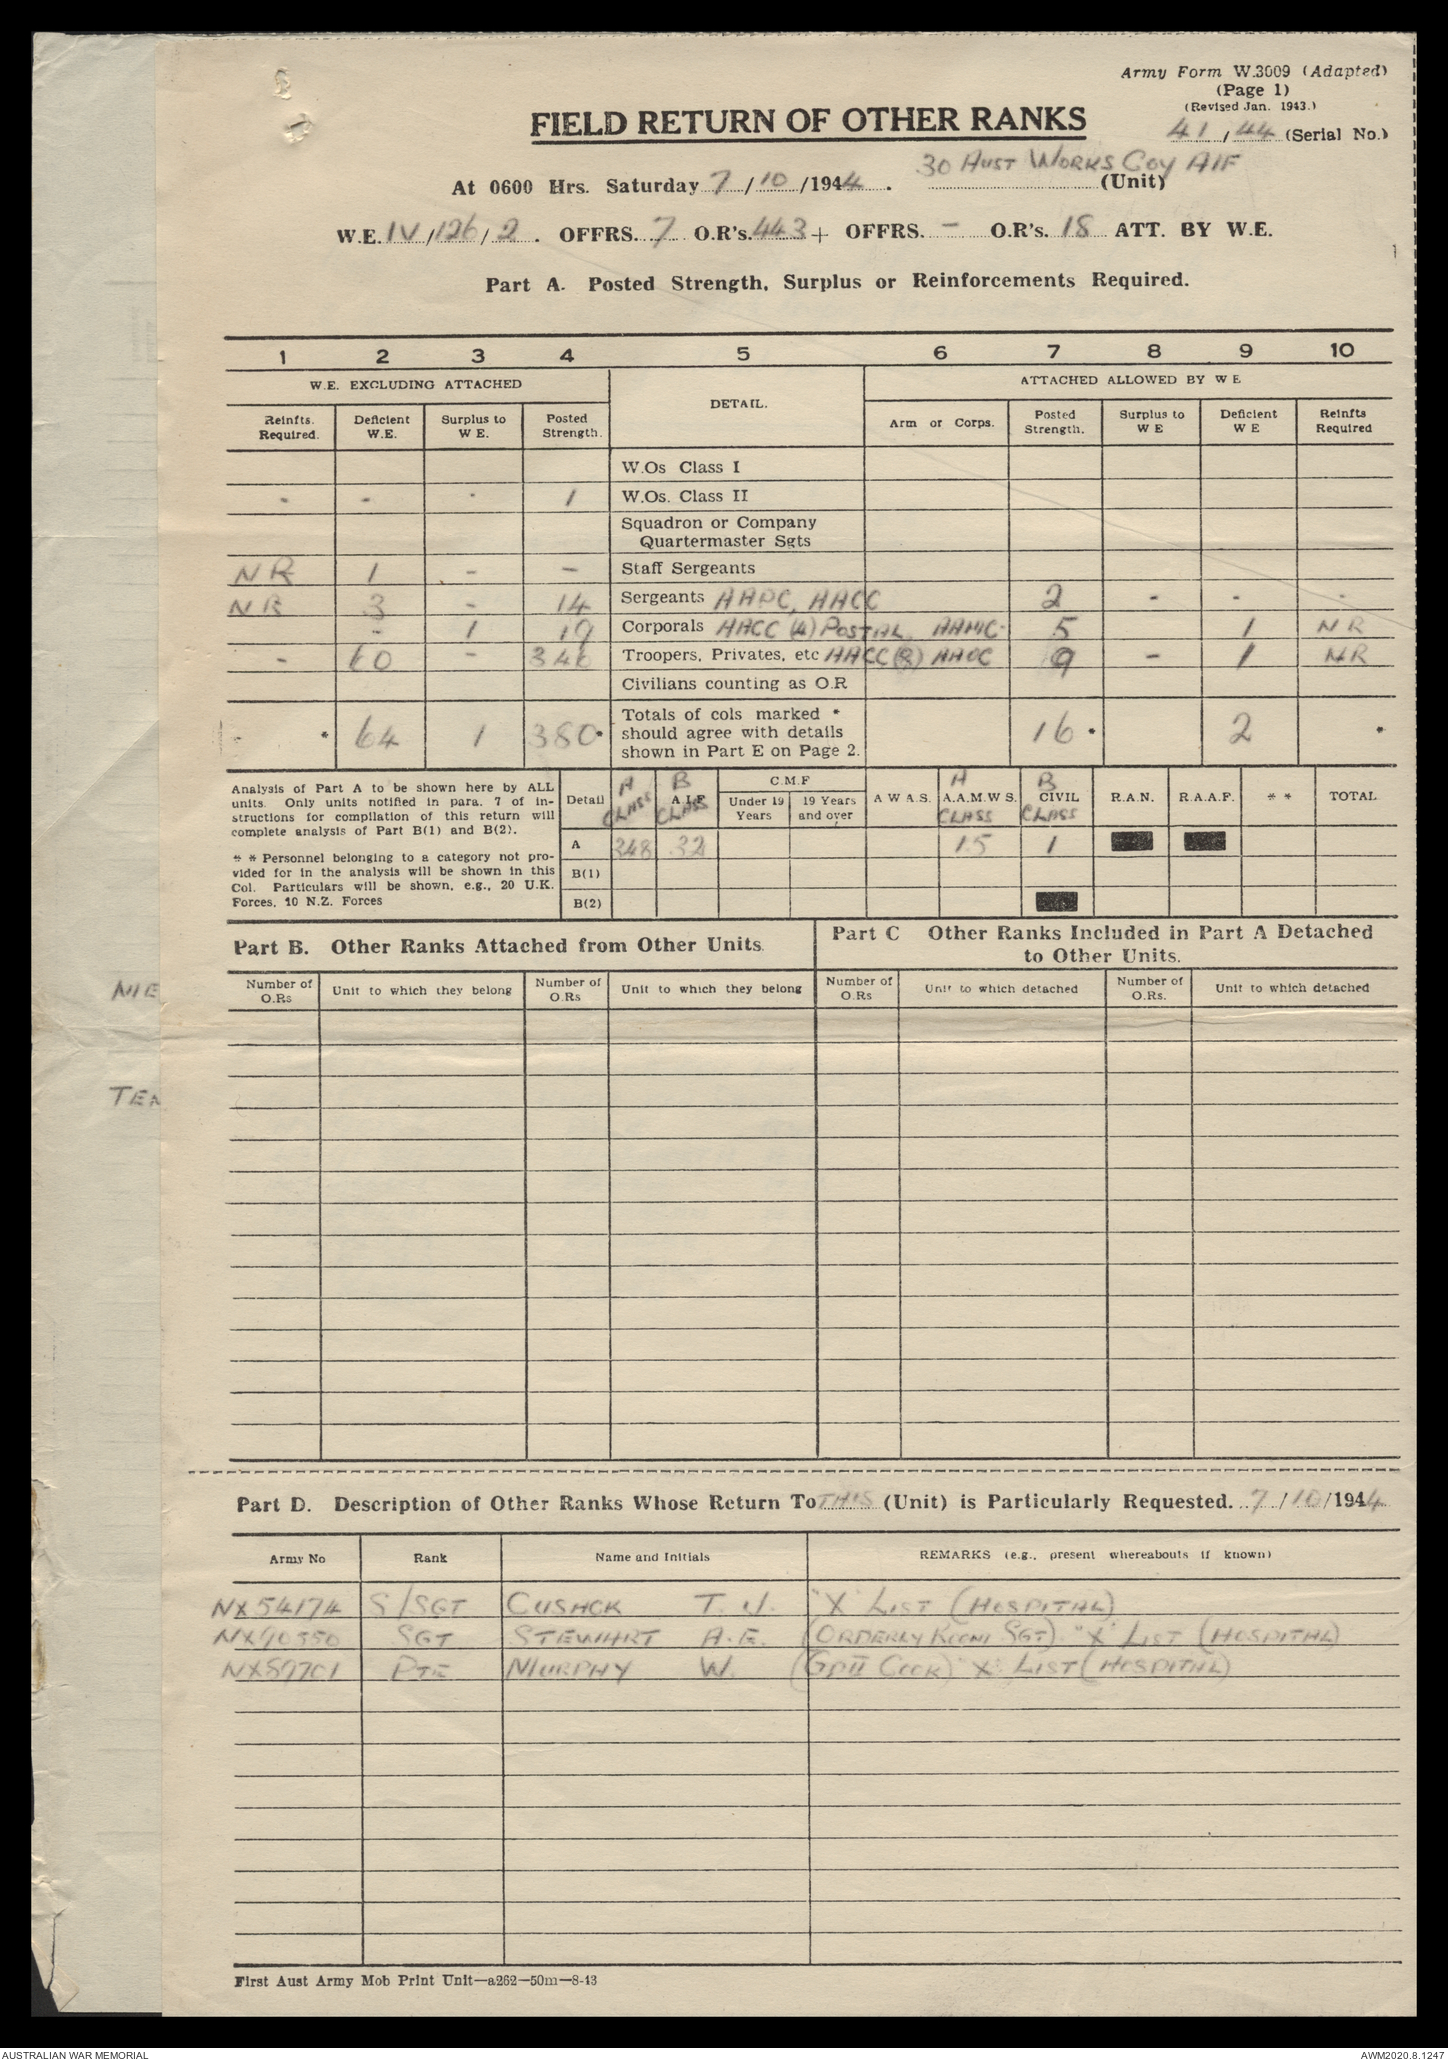 Army Form W.3009 (Adapted)
(Page 1)
(Revised Jan. 1943.)
41/44 (Serial No.)
FIELD RETURN OF OTHER RANKS
30 AUST WORKS COY AIF
At 0600 Hrs. Saturday 7/10/1944. (Unit)
W.E. IV/126/2. OFFRS. 7 O.R's. 443 + OFFRS. - O.R's. 18 ATT. BY W.E.
Part A. Posted Strength, Surplus or Reinforcements Required.
1 2 3 4 5 6 7 8 9 10
W.E. EXCLUDING ATTACHED DETAIL. ATTACHED ALLOWED BY W E
Reinfts. Required. Deficient W.E. Surplus to W E. Posted Strength. Arm or Corps. Posted Strength. Surplus to W E Deficient W E Reinfts Required
W.Os Class I
- - - 1 W.Os. Class II
Squadron or Company
Quartermaster Sgts
NR 1 - - Staff Sergeants
NR 3 - 14 Sergeants AAPC, AACC 2 - - -
- 1 19 Corporals AACC (4) POSTAL, AAMC 5 1 NR
- 60 - 346 Troopers, Privates, etc AACC (8) AAOC 9 - 1 NR
Civilians counting as O.R
- * 64 1 380 * Totals of cols marked * should agree with details shown in Part E on Page 2. 16 * 2 *
Analysis of Part A to be shown here by ALL
units. Only units notified in para. 7 of in-
structions for compilation of this return will
complete analysis of Part B(1) and B(2).
* * Personnel belonging to a category not pro-
vided for in the analysis will be shown in this
Col. Particulars will be shown, e.g., 20 U.K.
Forces, 10 N.Z. Forces
Detail A CLASS B CLASS A.I.F C.M.F Under 19 Years 19 Years and over A W A.S. A CLASS A.A.M.W S. B CLASS CIVIL R.A.N. R.A.A.F. * * TOTAL
A 348 32 15 1
B(1)
B(2)
Part B. Other Ranks Attached from Other Units.
Part C Other Ranks Included in Part A Detached
to Other Units.
Number of O.Rs Unit to which they belong Number of O.Rs Unit to which they belong Number of O.Rs Unit to which detached Number of O.Rs. Unit to which detached
NIE
TEN
Part D. Description of Other Ranks Whose Return To THIS (Unit) is Particularly Requested. 7/10/1944
Army No Rank Name and Initials REMARKS (e.g., present whereabouts if known)
NX54174 S/SGT CUSACK T. J. "X" LIST (HOSPITAL)
NX90550 SGT STEWART A.E. (ORDERLY ROOM SGT) "X" LIST (HOSPITAL)
NX59701 PTE MURPHY W. (GPII COOK) "X" LIST (HOSPITAL)
First Aust Army Mob Print Unit—a262—50m—8-43
AUSTRALIAN WAR MEMORIAL
AWM2020.8.1247